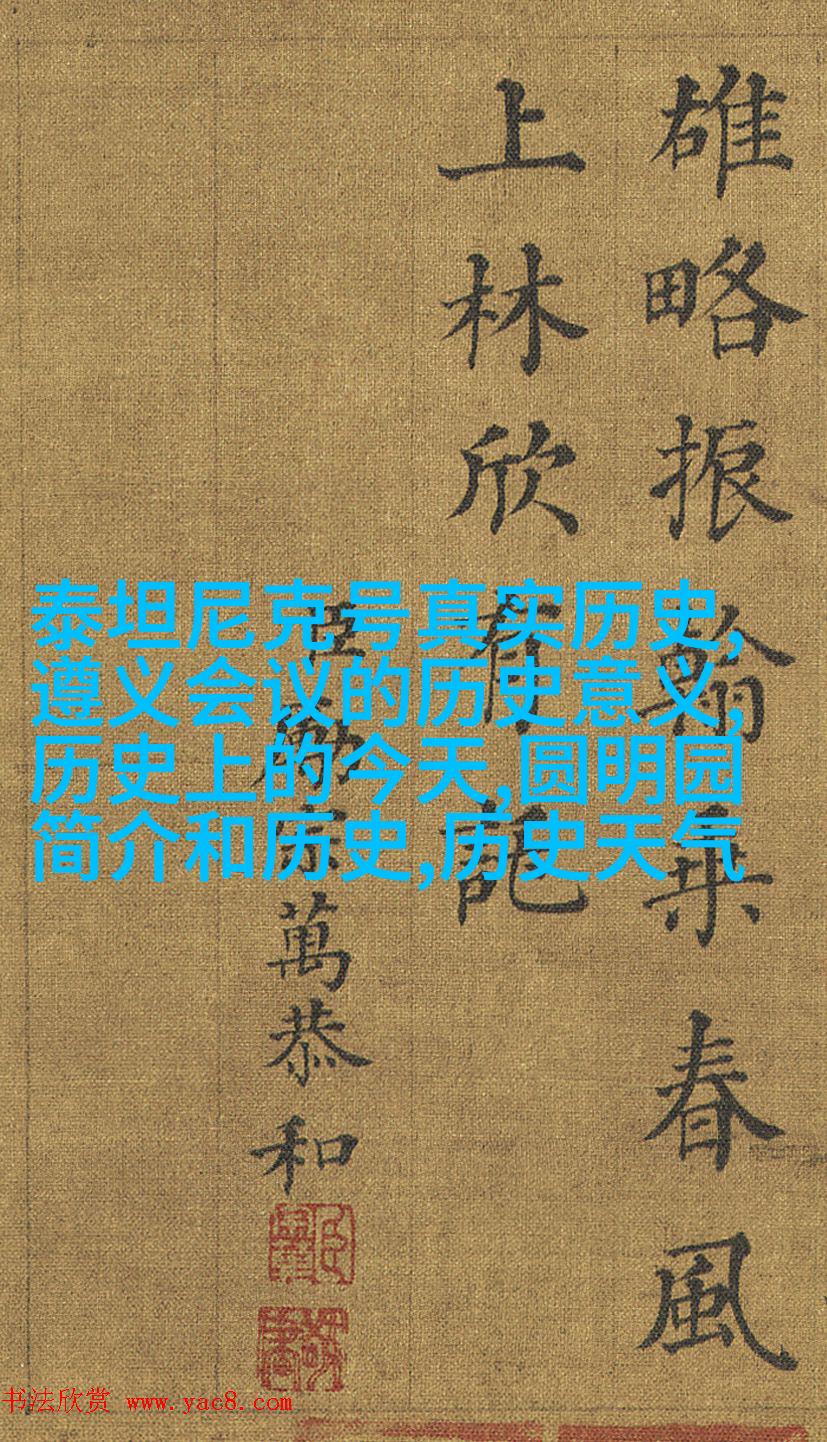 雄略振翰乗春風
上林欣有託
臣勵宗萬恭和
泰坦尼克号真实历史,
遵义会议的历史意义,
历史上的今天,圆明园
简介和历史,历史天气
书法欣赏 www.yac8.com